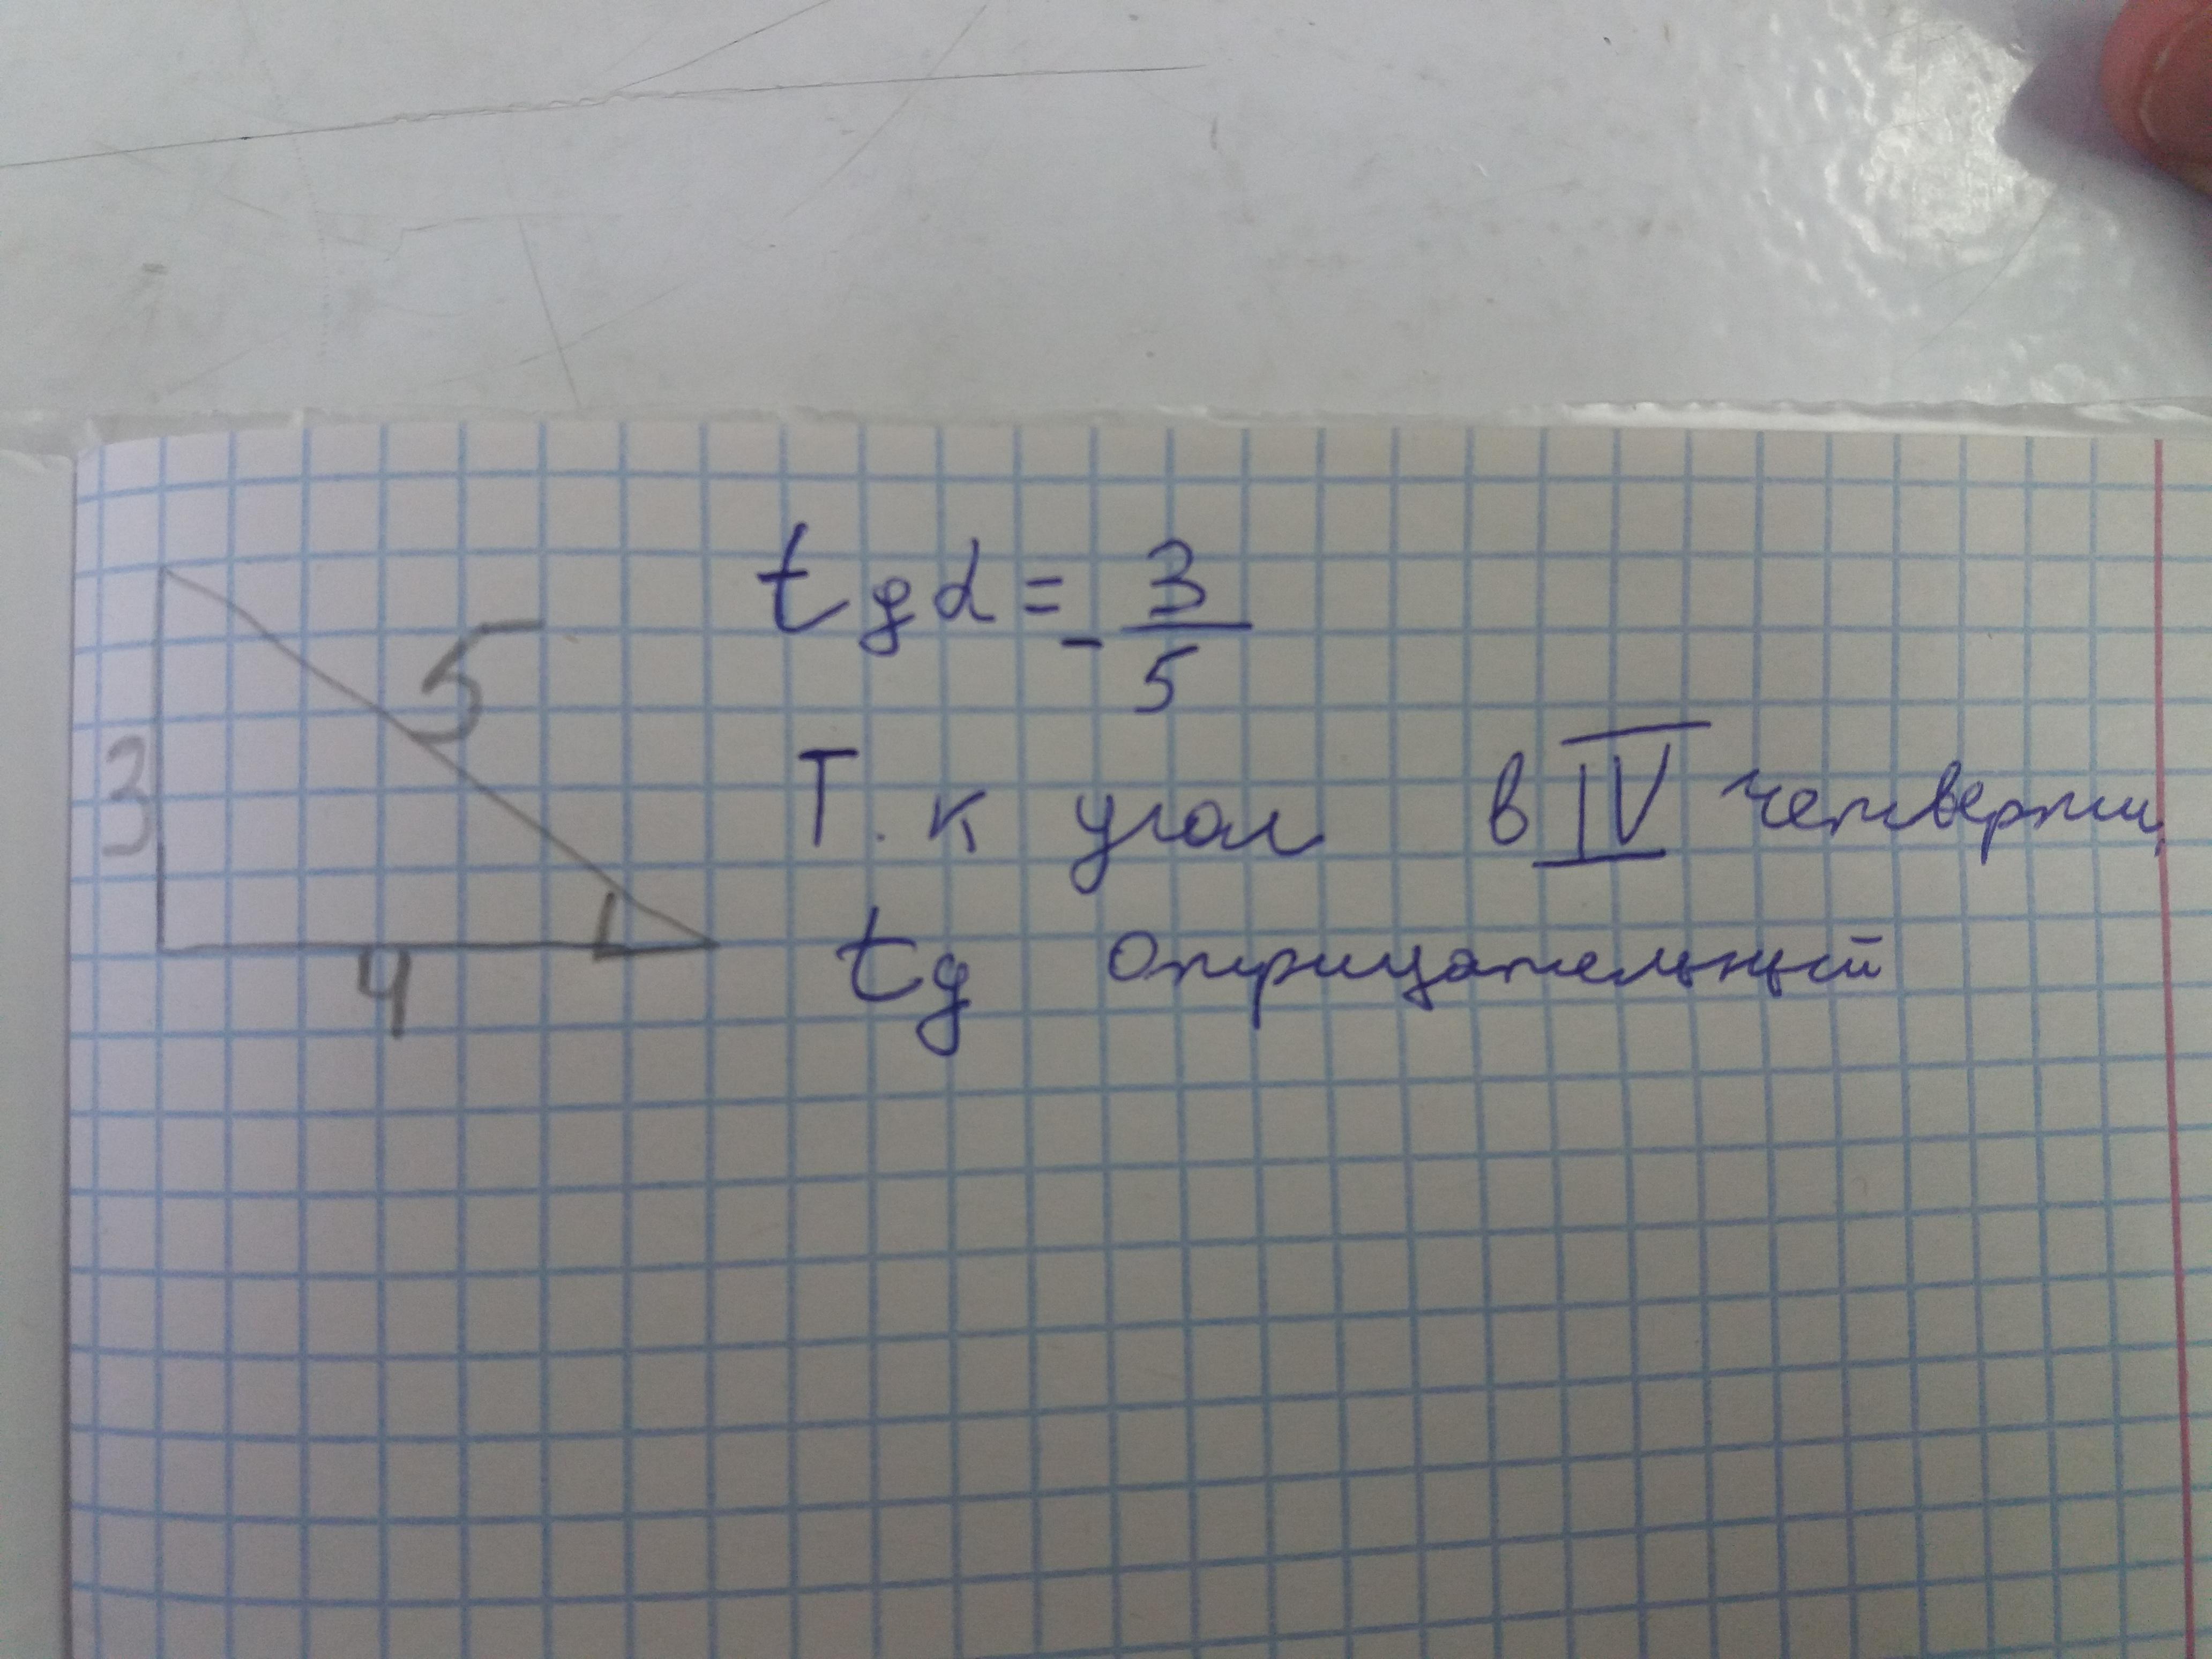 3
5
4
tg α = - 3/5
Т. к угол в IV четверти,
tg отрицательный